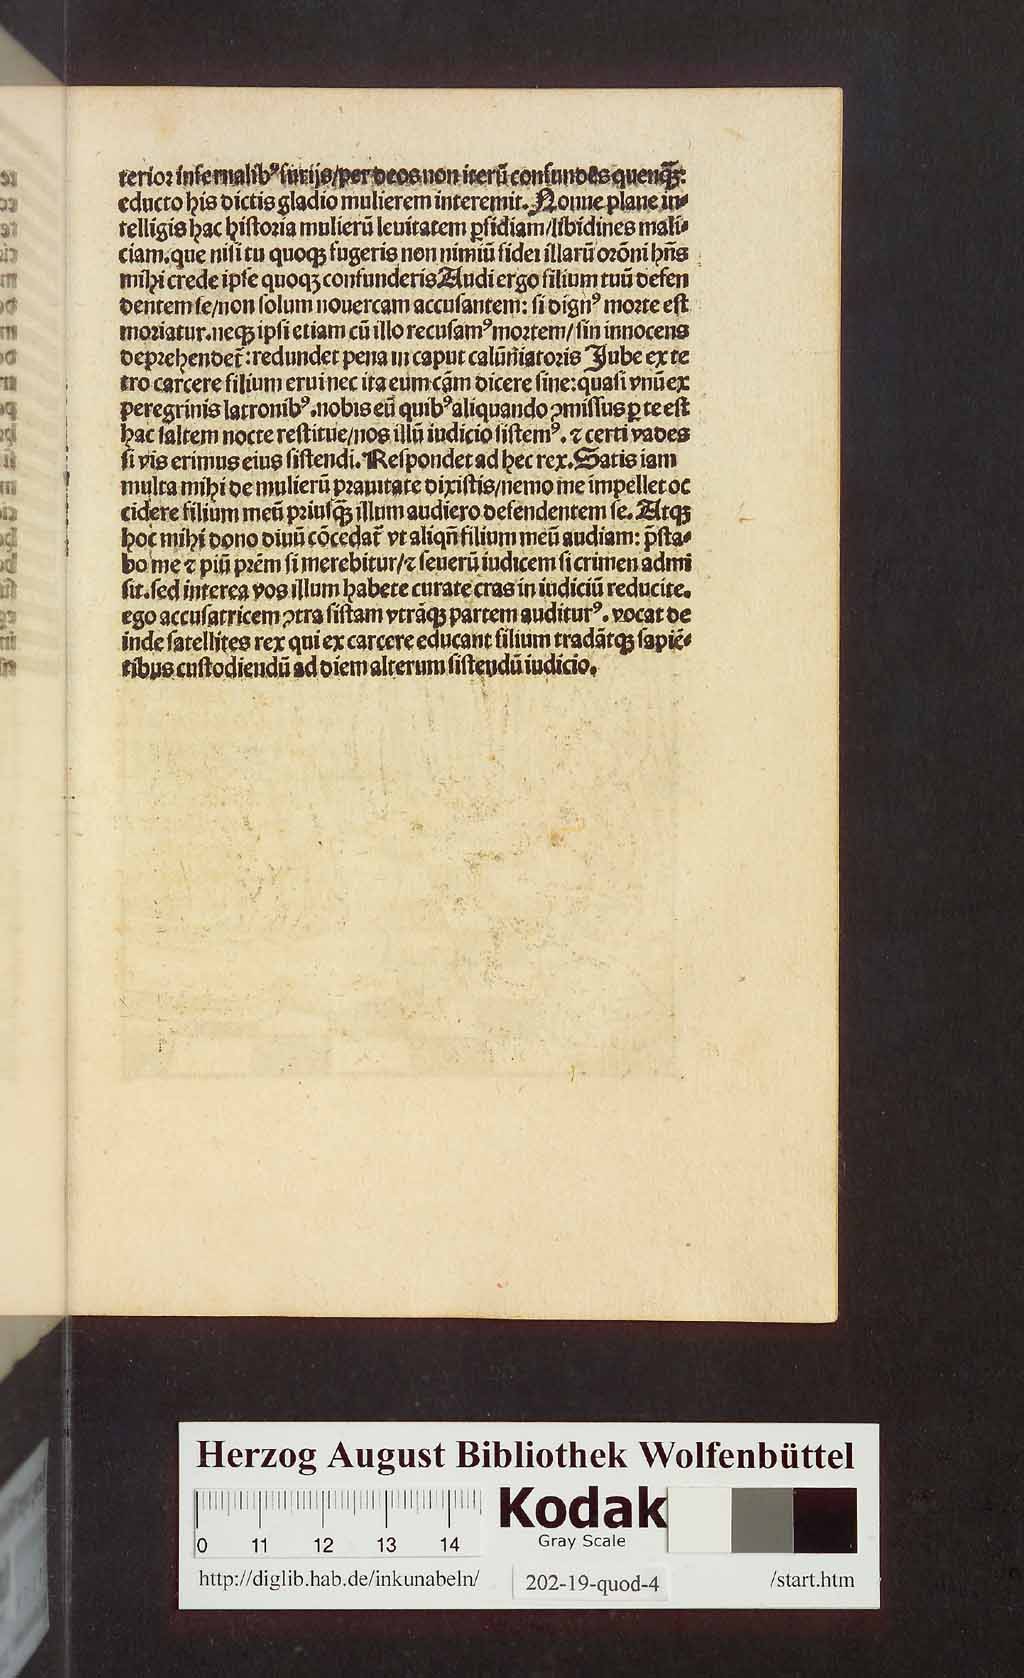 terior infernalibꝰ furijs/per deos non iterū confundes quenq̄ꝫ:
educto his dictis gladio mulierem interemit. Nonne plane in-
telligis hac historia mulierū leuitatem ꝑfidiam/libidines mali-
ciam. que nisi tu quoqꝫ fugeris non nimiū fidei illarū orōni hn̄s
mihi crede ipse quoqꝫ confunderis Audi ergo filium tuū defen
dentem se/non solum nouercam accusantem: si dignꝰ morte est
moriatur. neqꝫ ipsi etiam cū illo recusamꝰ mortem/sin innocens
deprehendet̄: redundet pena in caput calūniatoris Jube ex te
tro carcere filium erui nec ita eum cām dicere sine: quasi vnū ex
peregrinis latronibꝰ. nobis eū quibꝰ aliquando ꝯmissus ꝑ te est
hac saltem nocte restitue/nos illū iudicio sistemꝰ. ⁊ certi vades
si vis erimus eius sistendi. Respondet ad hec rex. Satis iam
multa mihi de mulierū prauitate dixistis/nemo me impellet oc
cidere filium meū priusq̄ꝫ illum audiero defendentem se. Atqꝫ
hoc mihi dono diuū cōcedat̄ vt aliqn̄ filium meū audiam: p̄sta-
bo me ⁊ piū prēm si merebitur/⁊ seuerū iudicem si crimen admi
sit. sed interea vos illum habete curate cras in iudiciū reducite.
ego accusatricem ꝯtra sistam vtrāqꝫ partem auditurꝰ. vocat de
inde satellites rex qui ex carcere educant filium tradātqꝫ sapiē-
tibus custodiendū ad diem alterum sistendū iudicio.
Herzog August Bibliothek Wolfenbüttel
0 11 12 13 14
Kodak
Gray Scale
http://diglib.hab.de/inkunabeln/
202-19-quod-4
/start.htm